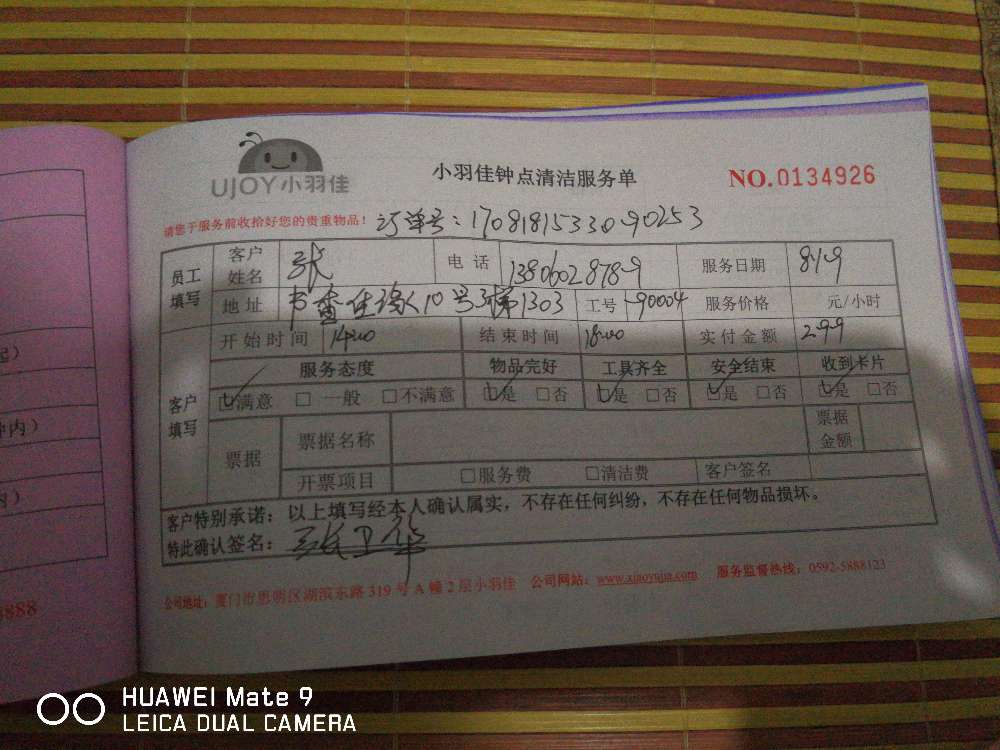 UJOY小羽佳
小羽佳钟点清洁服务单
NO.0134926
请您于服务前收拾好您的贵重物品! 订单号:1708181533090253
员工填写 客户姓名 张 电话 13806028789 服务日期 819
地址 10号3梯1303 工号 90004 服务价格 元/小时
开始时间 14:00 结束时间 18:00 实付金额 299
客户填写 服务态度 物品完好 工具齐全 安全结束 收到卡片
☑满意 □一般 □不满意 ☑是 □否 ☑是 □否 ☑是 □否 ☑是 □否
票据 票据名称 票据金额
开票项目 □服务费 □清洁费 客户签名
客户特别承诺:以上填写经本人确认属实,不存在任何纠纷,不存在任何物品损坏。
特此确认签名:张卫华
公司地址:厦门市思明区湖滨东路319号A幢2层小羽佳 公司网站:www.xiaoyujia.com 服务监督热线:0592-5888123
8888
HUAWEI Mate 9
LEICA DUAL CAMERA